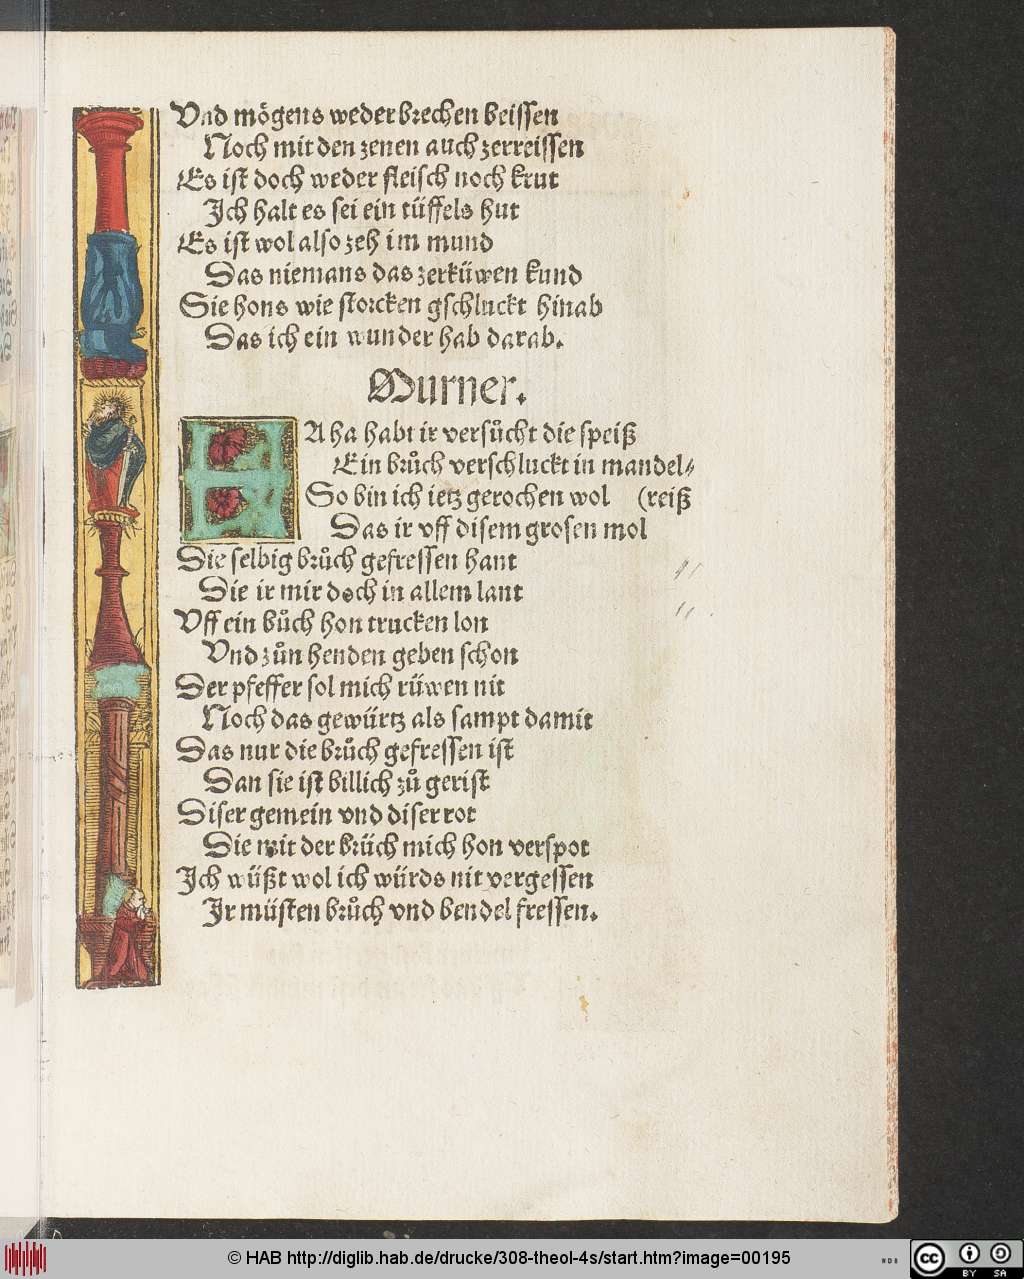 Vnd mögens weder brechen beissen
Noch mit den zenen auch zerreissen
Es ist doch weder fleisch noch krut
Ich halt es sei ein tüffels hut
Es ist wol also zeh im mund
Das niemans das zerküwen kund
Sie hons wie storcken gschluckt hinab
Das ich ein wunder hab darab.
Murner.
HAha habt ir versůcht die speiß
Ein brůch verschluckt in mandel⸗
So bin ich ietz gerochen wol (reiß
Das ir vff disem grosen mol
Die selbig brůch gefressen hant
Die ir mir doch in allem lant
Vff ein bůch hon trucken lon
Vnd zůn henden geben schon
Der pfeffer sol mich rüwen nit
Noch das gewürtz als sampt damit
Das nur die brůch gefressen ist
Dan sie ist billich zů gerist
Diser gemein vnd diser rot
Die mit der brüch mich hon verspot
Ich wüßt wol ich würds nit vergessen
Ir müsten brůch vnd bendel fressen.
© HAB http://diglib.hab.de/drucke/308-theol-4s/start.htm?image=00195
WDB
cc BY SA